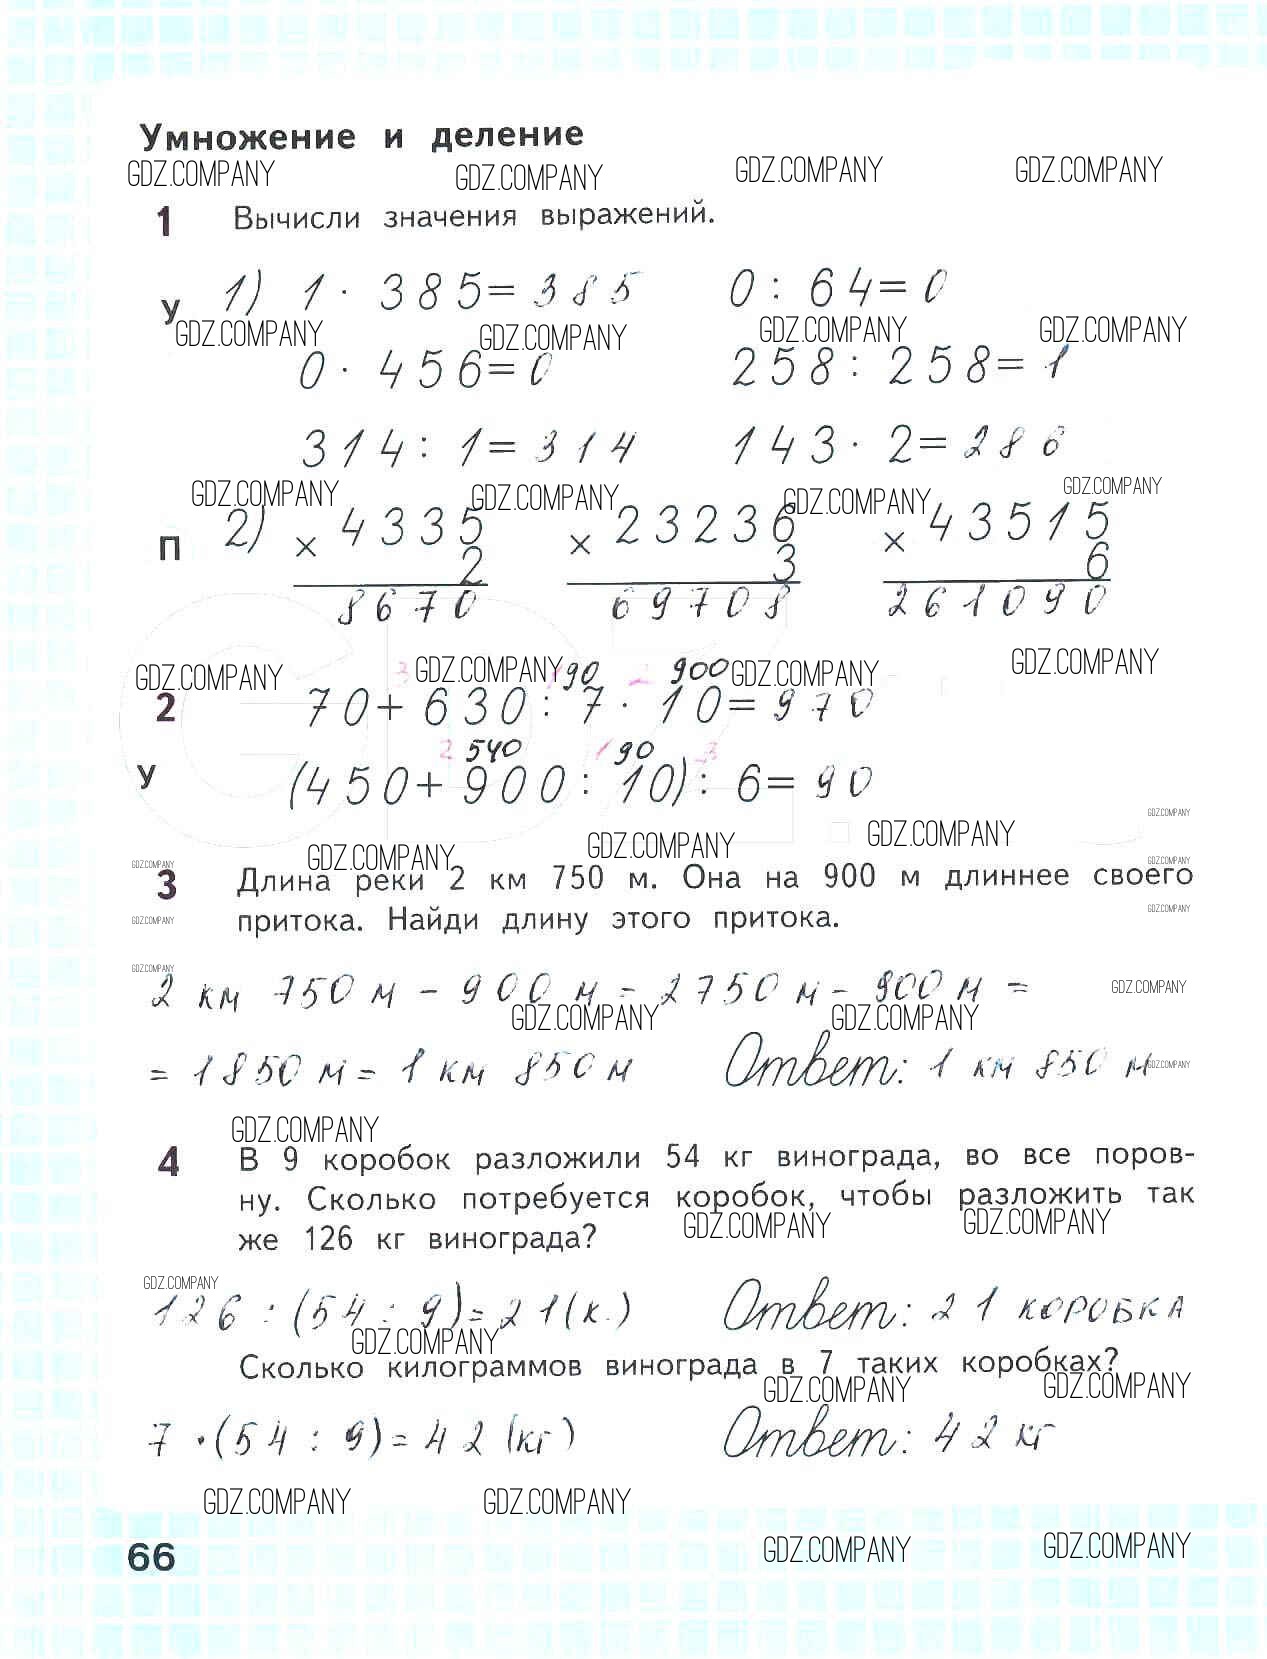 Умножение и деление
GDZ.COMPANY GDZ.COMPANY GDZ.COMPANY GDZ.COMPANY
1 Вычисли значения выражений.
У 1) 1 · 385 = 385 0 : 64 = 0
GDZ.COMPANY GDZ.COMPANY GDZ.COMPANY GDZ.COMPANY
0 · 456 = 0 258 : 258 = 1
314 : 1 = 314 143 · 2 = 286
GDZ.COMPANY GDZ.COMPANY GDZ.COMPANY GDZ.COMPANY
П 2) × 4335 × 23236 × 43515
2 3 6
8670 69708 261090
GDZ.COMPANY 3 GDZ.COMPANY 1 90 2 900 GDZ.COMPANY GDZ.COMPANY
2 70 + 630 : 7 · 10 = 970
2 540 1 90 3
У (450 + 900 : 10) : 6 = 90
GDZ.COMPANY
GDZ.COMPANY GDZ.COMPANY GDZ.COMPANY GDZ.COMPANY GDZ.COMPANY
3 Длина реки 2 км 750 м. Она на 900 м длиннее своего
GDZ.COMPANY притока. Найди длину этого притока. GDZ.COMPANY
GDZ.COMPANY
2 км 750 м – 900 м = 2750 м – 900 м = GDZ.COMPANY
GDZ.COMPANY GDZ.COMPANY
= 1850 м = 1 км 850 м Ответ: 1 км 850 м GDZ.COMPANY
GDZ.COMPANY
4 В 9 коробок разложили 54 кг винограда, во все поров-
ну. Сколько потребуется коробок, чтобы разложить так
GDZ.COMPANY GDZ.COMPANY
же 126 кг винограда?
GDZ.COMPANY
126 : (54 : 9) = 21 (к.) Ответ: 21 коробка
GDZ.COMPANY
Сколько килограммов винограда в 7 таких коробках?
GDZ.COMPANY GDZ.COMPANY
7 · (54 : 9) = 42 (кг) Ответ: 42 кг
GDZ.COMPANY GDZ.COMPANY
66 GDZ.COMPANY GDZ.COMPANY